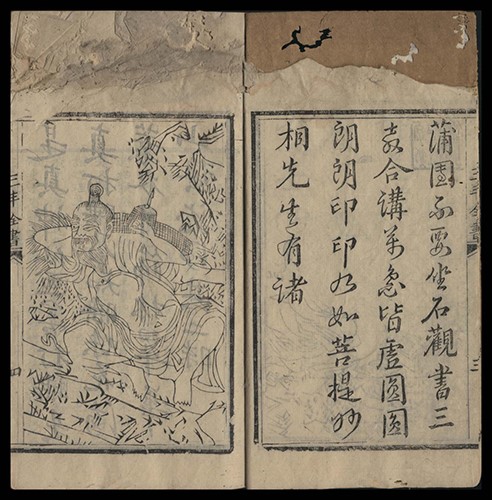 蒲團不要坐石觀書三
教合講萬象皆虛圓圓
朗朗印印乃如菩提妙
相先生有諸
三丰全書
四